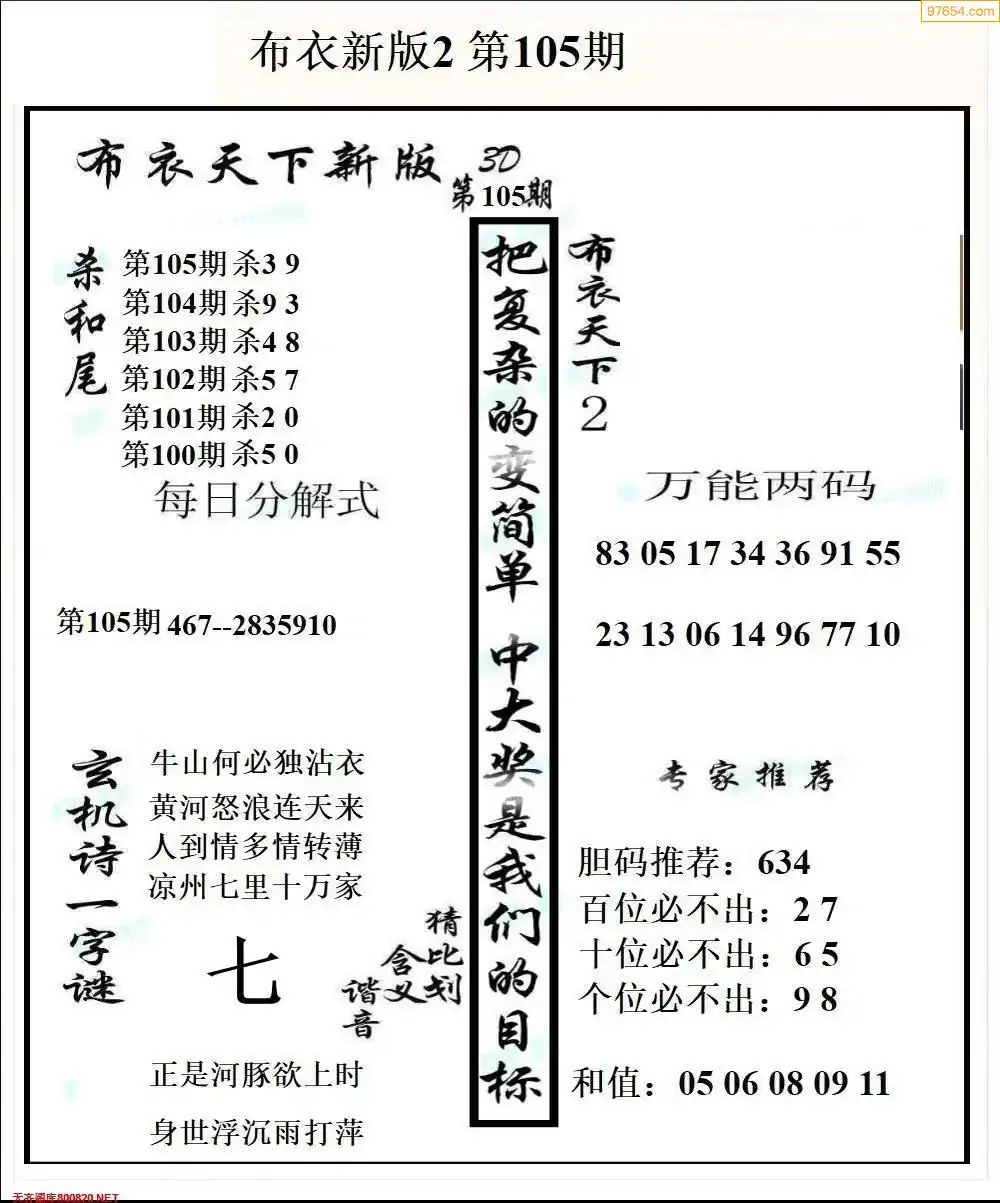 97654.com
布衣新版2 第105期
布衣天下新版
3D
第105期
杀和尾
第105期杀3 9
第104期杀9 3
第103期杀4 8
第102期杀5 7
第101期杀2 0
第100期杀5 0
每日分解式
第105期 467--2835910
玄机诗一字谜
牛山何必独沾衣
黄河怒浪连天来
人到情多情转薄
凉州七里十万家
七
猜比划
含义
谐音
正是河豚欲上时
身世浮沉雨打萍
把复杂的变简单 中大奖是我们的目标
布衣天下2
万能两码
83 05 17 34 36 91 55
23 13 06 14 96 77 10
专家推荐
胆码推荐：634
百位必不出：2 7
十位必不出：6 5
个位必不出：9 8
和值：05 06 08 09 11
天齐图库800820.NET